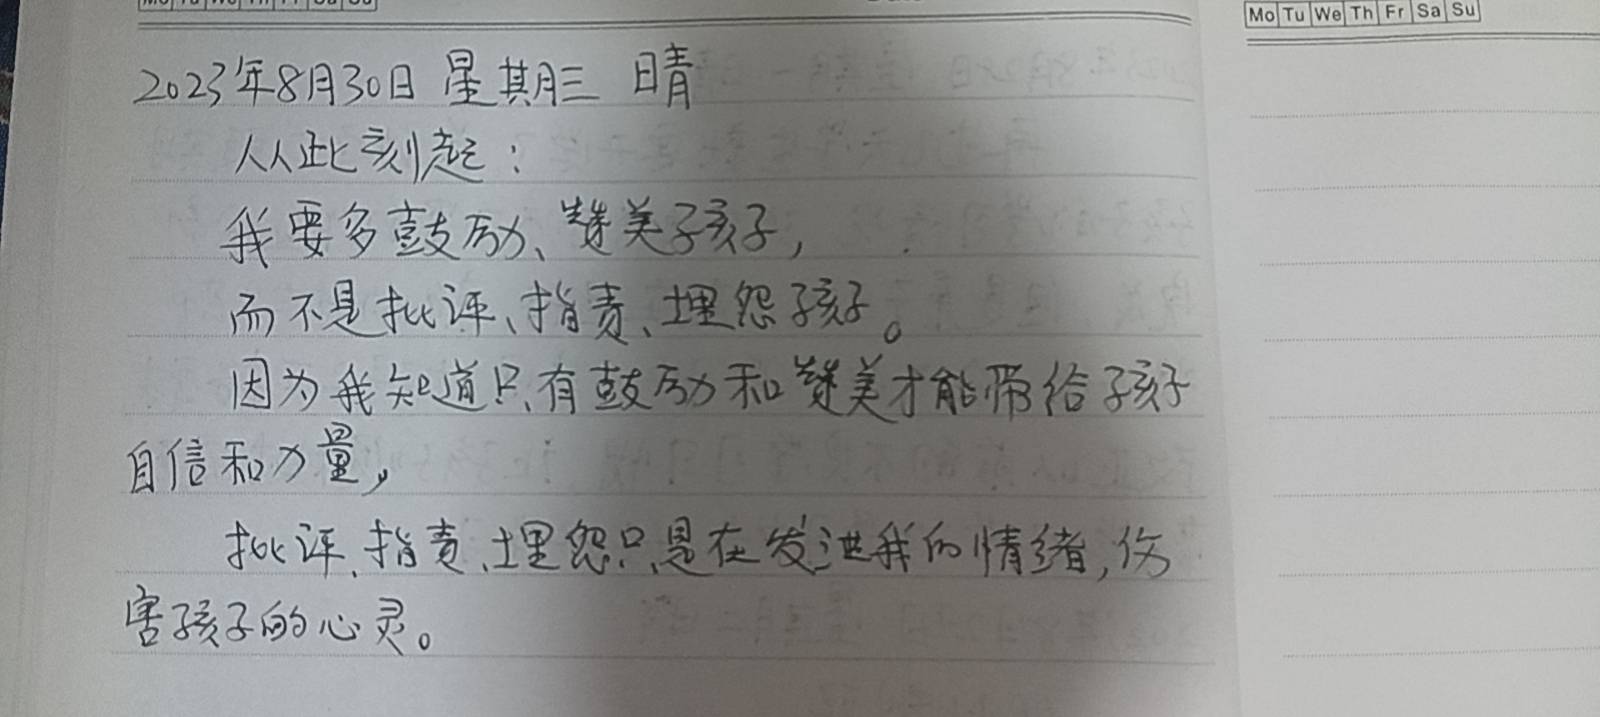 Mo Tu We Th Fr Sa Su
Mo Tu We Th Fr Sa Su
2023年8月30日 星期三 晴
从此刻起：
我要多鼓励、赞美孩子，
而不是批评、指责、埋怨孩子。
因为我知道只有鼓励和赞美才能带给孩子
自信和力量，
批评、指责、埋怨只是在发泄我的情绪，伤
害孩子的心灵。